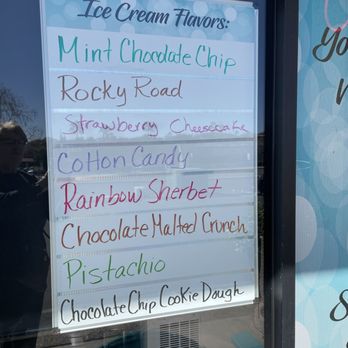 Ice Cream Flavors:
Mint Chocolate Chip
Rocky Road
Strawberry Cheesecake
Cotton Candy
Rainbow Sherbet
Chocolate Malted Crunch
Pistachio
Chocolate Chip Cookie Dough